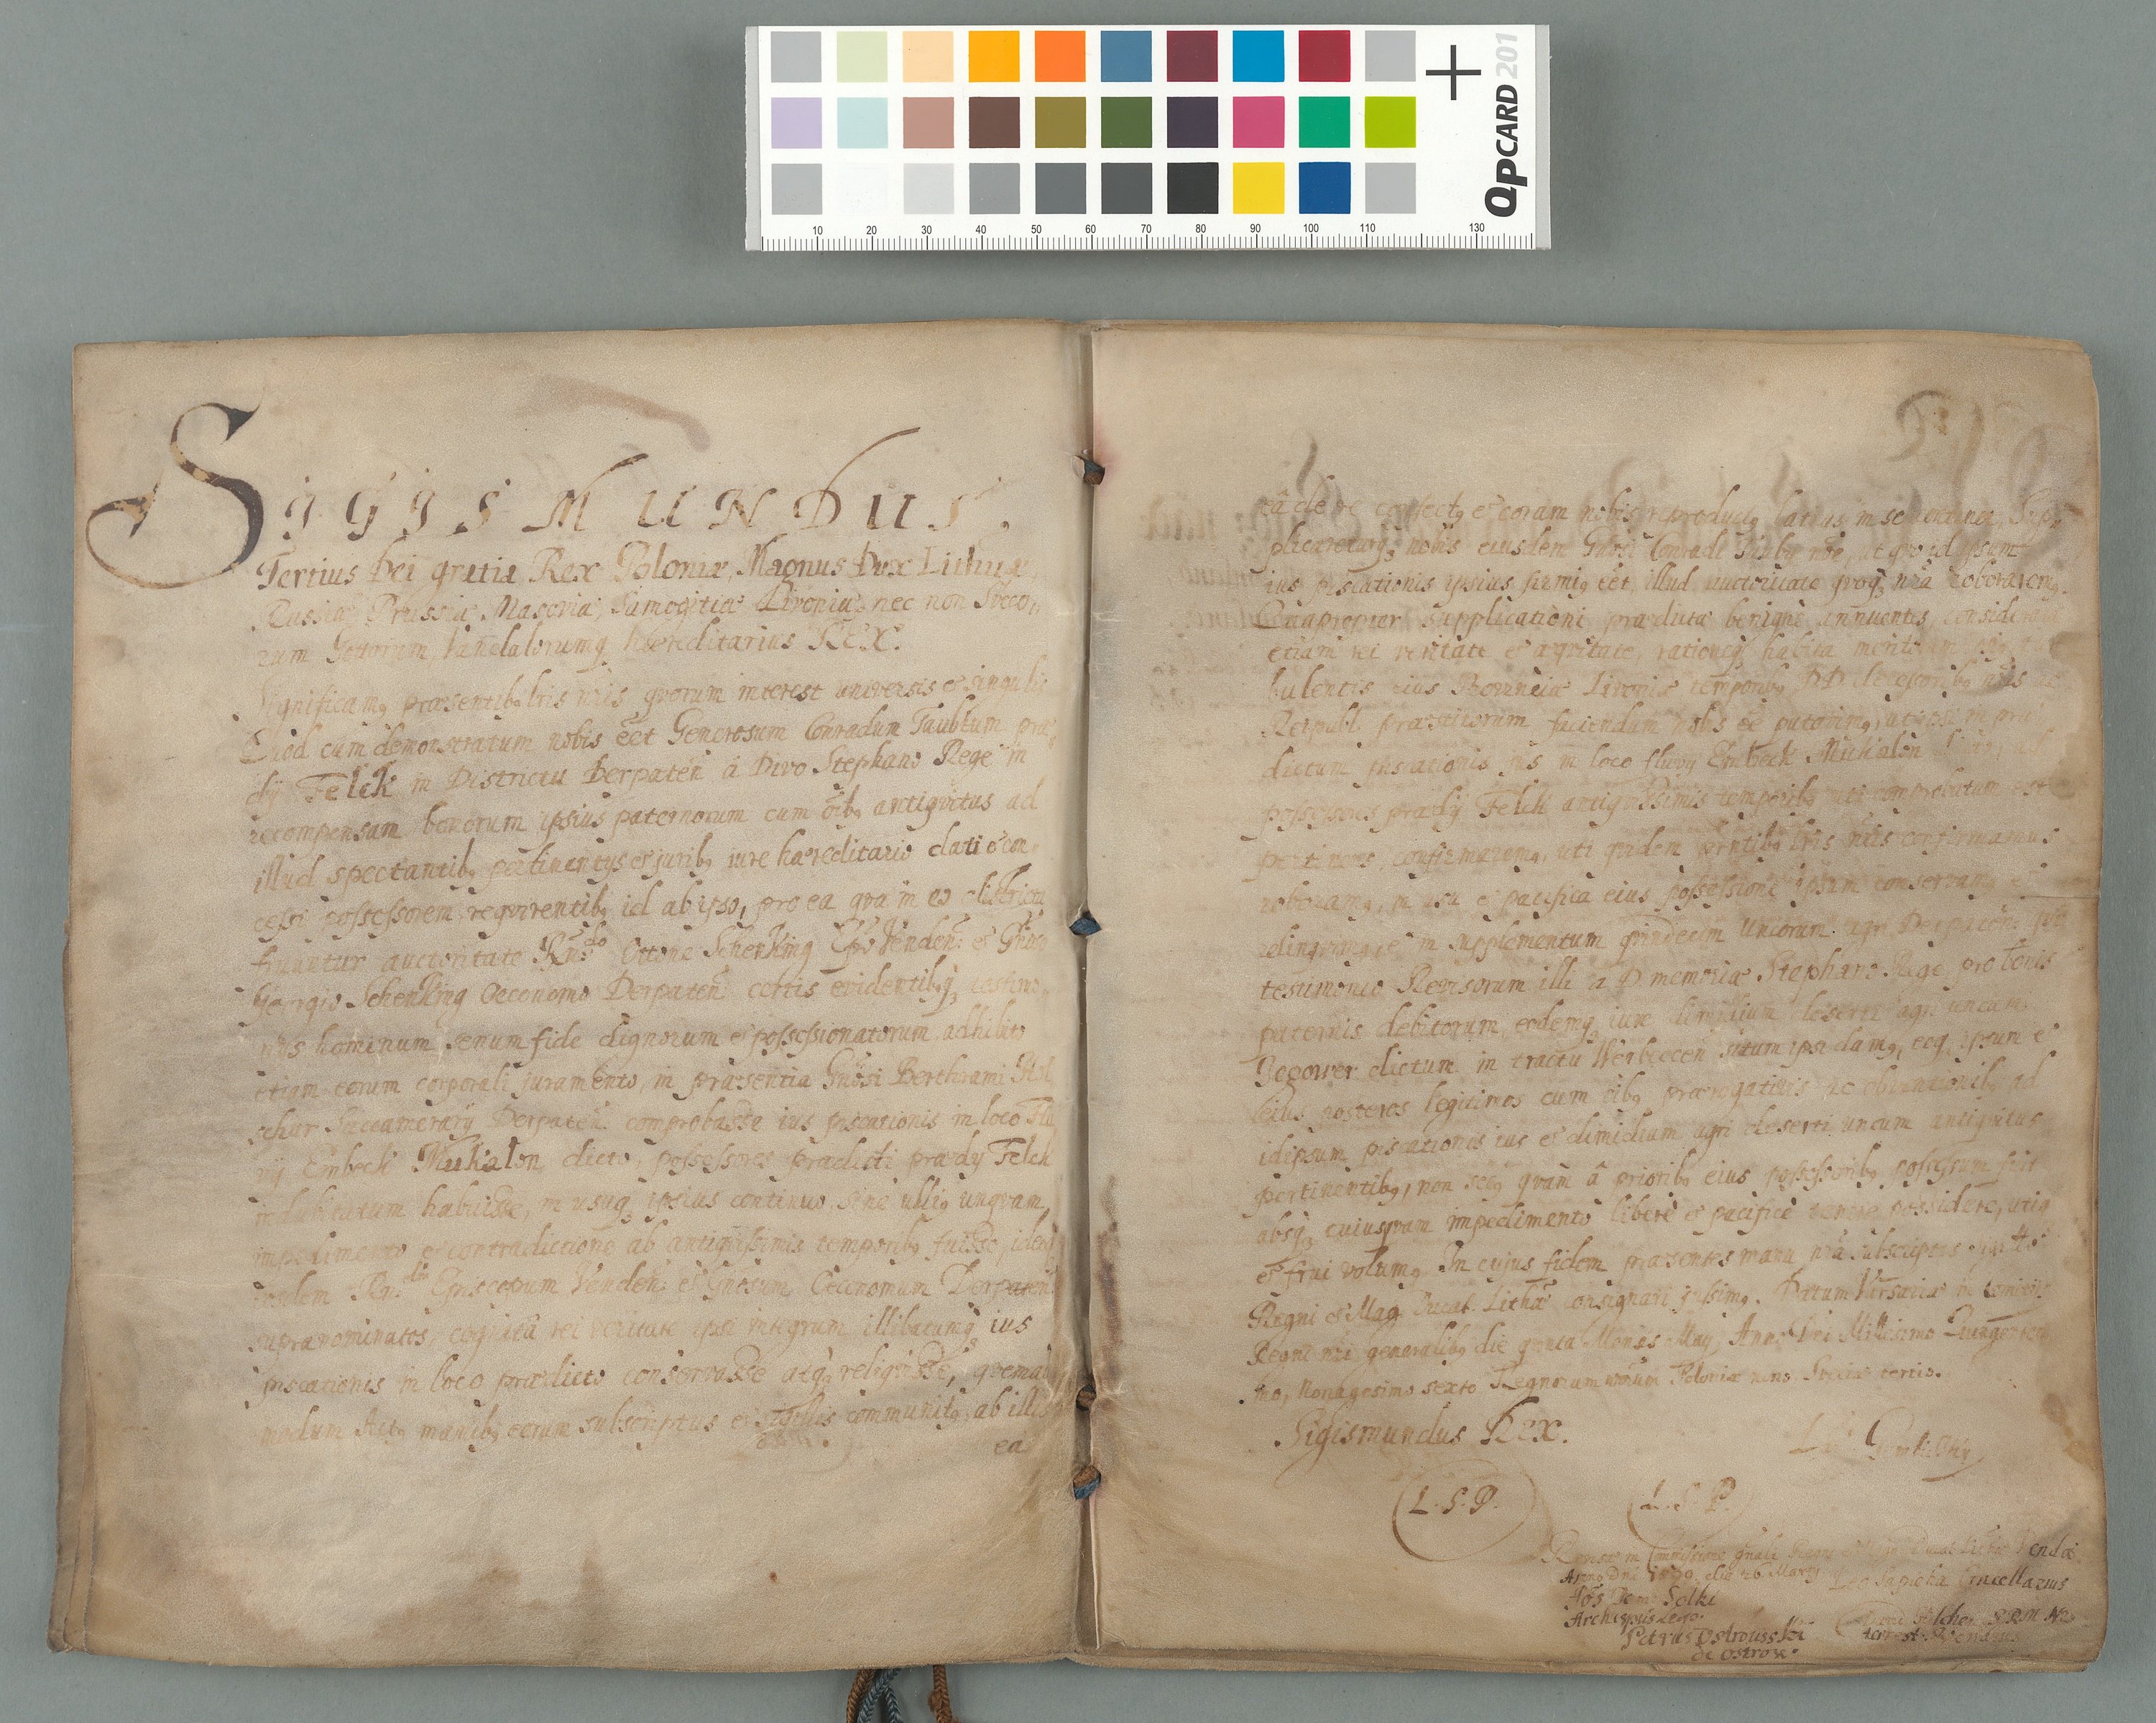 QPCARD 201
10 20 30 40 50 60 70 80 90 100 110 130
SYGISMUNDUS.
Tertius Dei gratia Rex Poloniæ, Magnus Dux Lithuæ,
Russiæ, Prussiæ Masoviæ, Samogitiæ Livoniæ, nec non Sveco,
rum Gottorum Vandalorumq Hæreditarius REX.
Significamq præsentibq lris nris qvorum interest universis et singulis
Qvod cum demonstratum nobis eet Generosum Conradum Taubtum præ,
dij Felck in Districtu Derpateñ á Divo Stephano Rege in
recompensam bonorum ipsius paternorum cum oibq antiqvitus ad
illud spectantibq pertinentijs et juribq iure hæreditario dati et con,
cessi possessorem, reqvirentibq id ab ipso, pro ea qva in eo districtu
fruuntur auctoritate Rndo Ottone Schenking Epo Venden: et Gnoso
Georgio Schenking Oeconomo Derpateñ certis evidentibqq testimo,
niis hominum senum fide dignorum et possessionatorum adhibito
etiam eorum corporali juramento, in præsentia Gnosi Berthrami Hol
schur Succamerarij Derpateñ comprobasse ius piscationis in loco Flu
vij Embeck Mukalon dicto, possessores prædicti prædij Felck
indubitatum habuisse, in usuq ipsius continuo, sine ulliq unqvam
impedimento et contradictione ab antiqvissimis temporibq fuisse, idem
eosdem Rndm Episcopum Venden: et Gnosum Oeconomum Derpateñ
supranominatos, cognitâ rei veritate ipsi integrum illibatumq ius
piscationis in loco prædicto conservasse atq reliqvisse, qvemad
modum Actq manibq eorum subscriptus et sigillis communitq ab illis
ea
eâ de re confectq et coram nobis reproductq latius in se continet, Sup,
plicareturq nobis eiusdem Gnosi Conradi Taube noie, ut qvo id ipsum
ius piscationis ipsius firmiq eet, illud auctoritate qvoq nra roboraremq.
Qvapropter supplicationi prædictæ benigne annuentes, considerata
etiam rei veritate et æqvitate, rationeq habita meritorum
bulentis eius Provinciæ Livoniæ temporibq DD decessoribq nris ac
Reipubl. præstitorum faciendum nobis ee putavimq, ut ipsi in præ
dictum piscationis jus in loco fluvij Embeck Muchalon
possessores prædij Felck antiqvissimis temporibq uti comprobatum est
pertinens, confirmaremq, uti qvidem pñtibq lris nris confirmamus
roboramq, in usu et pacifica eius possessione ipsum conservamq et
relinqvimq, et in supplementum qvindecim uncorum agri Derpateñ
testimonio Revisorum illi a D. memoriæ Stephano Rege pro bonis
paternis debitorum, eodemq iure dimidium deserti agri uncum
Jegower dictum in tractu Werbecen situm ipsi damq, eoq ipsum et
eius posteros legitimos cum oibq prærogativis ac obventionibq ad
idipsum piscationis ius et dimidium agri deserti uncum antiqvitus
pertinentibq, non secq qvam â prioribq eius possessoribq possessum fuit
absq cuiusqvam impedimento libere et pacifice tenere possidere, utiq
et frui volumq. In cujus fidem præsentes manu nra subscriptas sigillo
Regni et Mag. Ducat. Lithæ consignari jussimq. Datum Varsaviæ in comitijs
Regni nri generalibq die qvinta Mensis May, Anno Dni Millesimo Qvingentesi
mo, Nonagesimo sexto Regnorum nrorum Poloniæ nono Sveciæ tertio.
Sigismundus Rex.
L.S.P.
L.S.P.
Anno Dni 1599 die 26 Martij Leo Sapieha Cancellarius
Jos Dem: Solki
Archiepus Leop.
Petrus Ostrousski
de Ostrow.